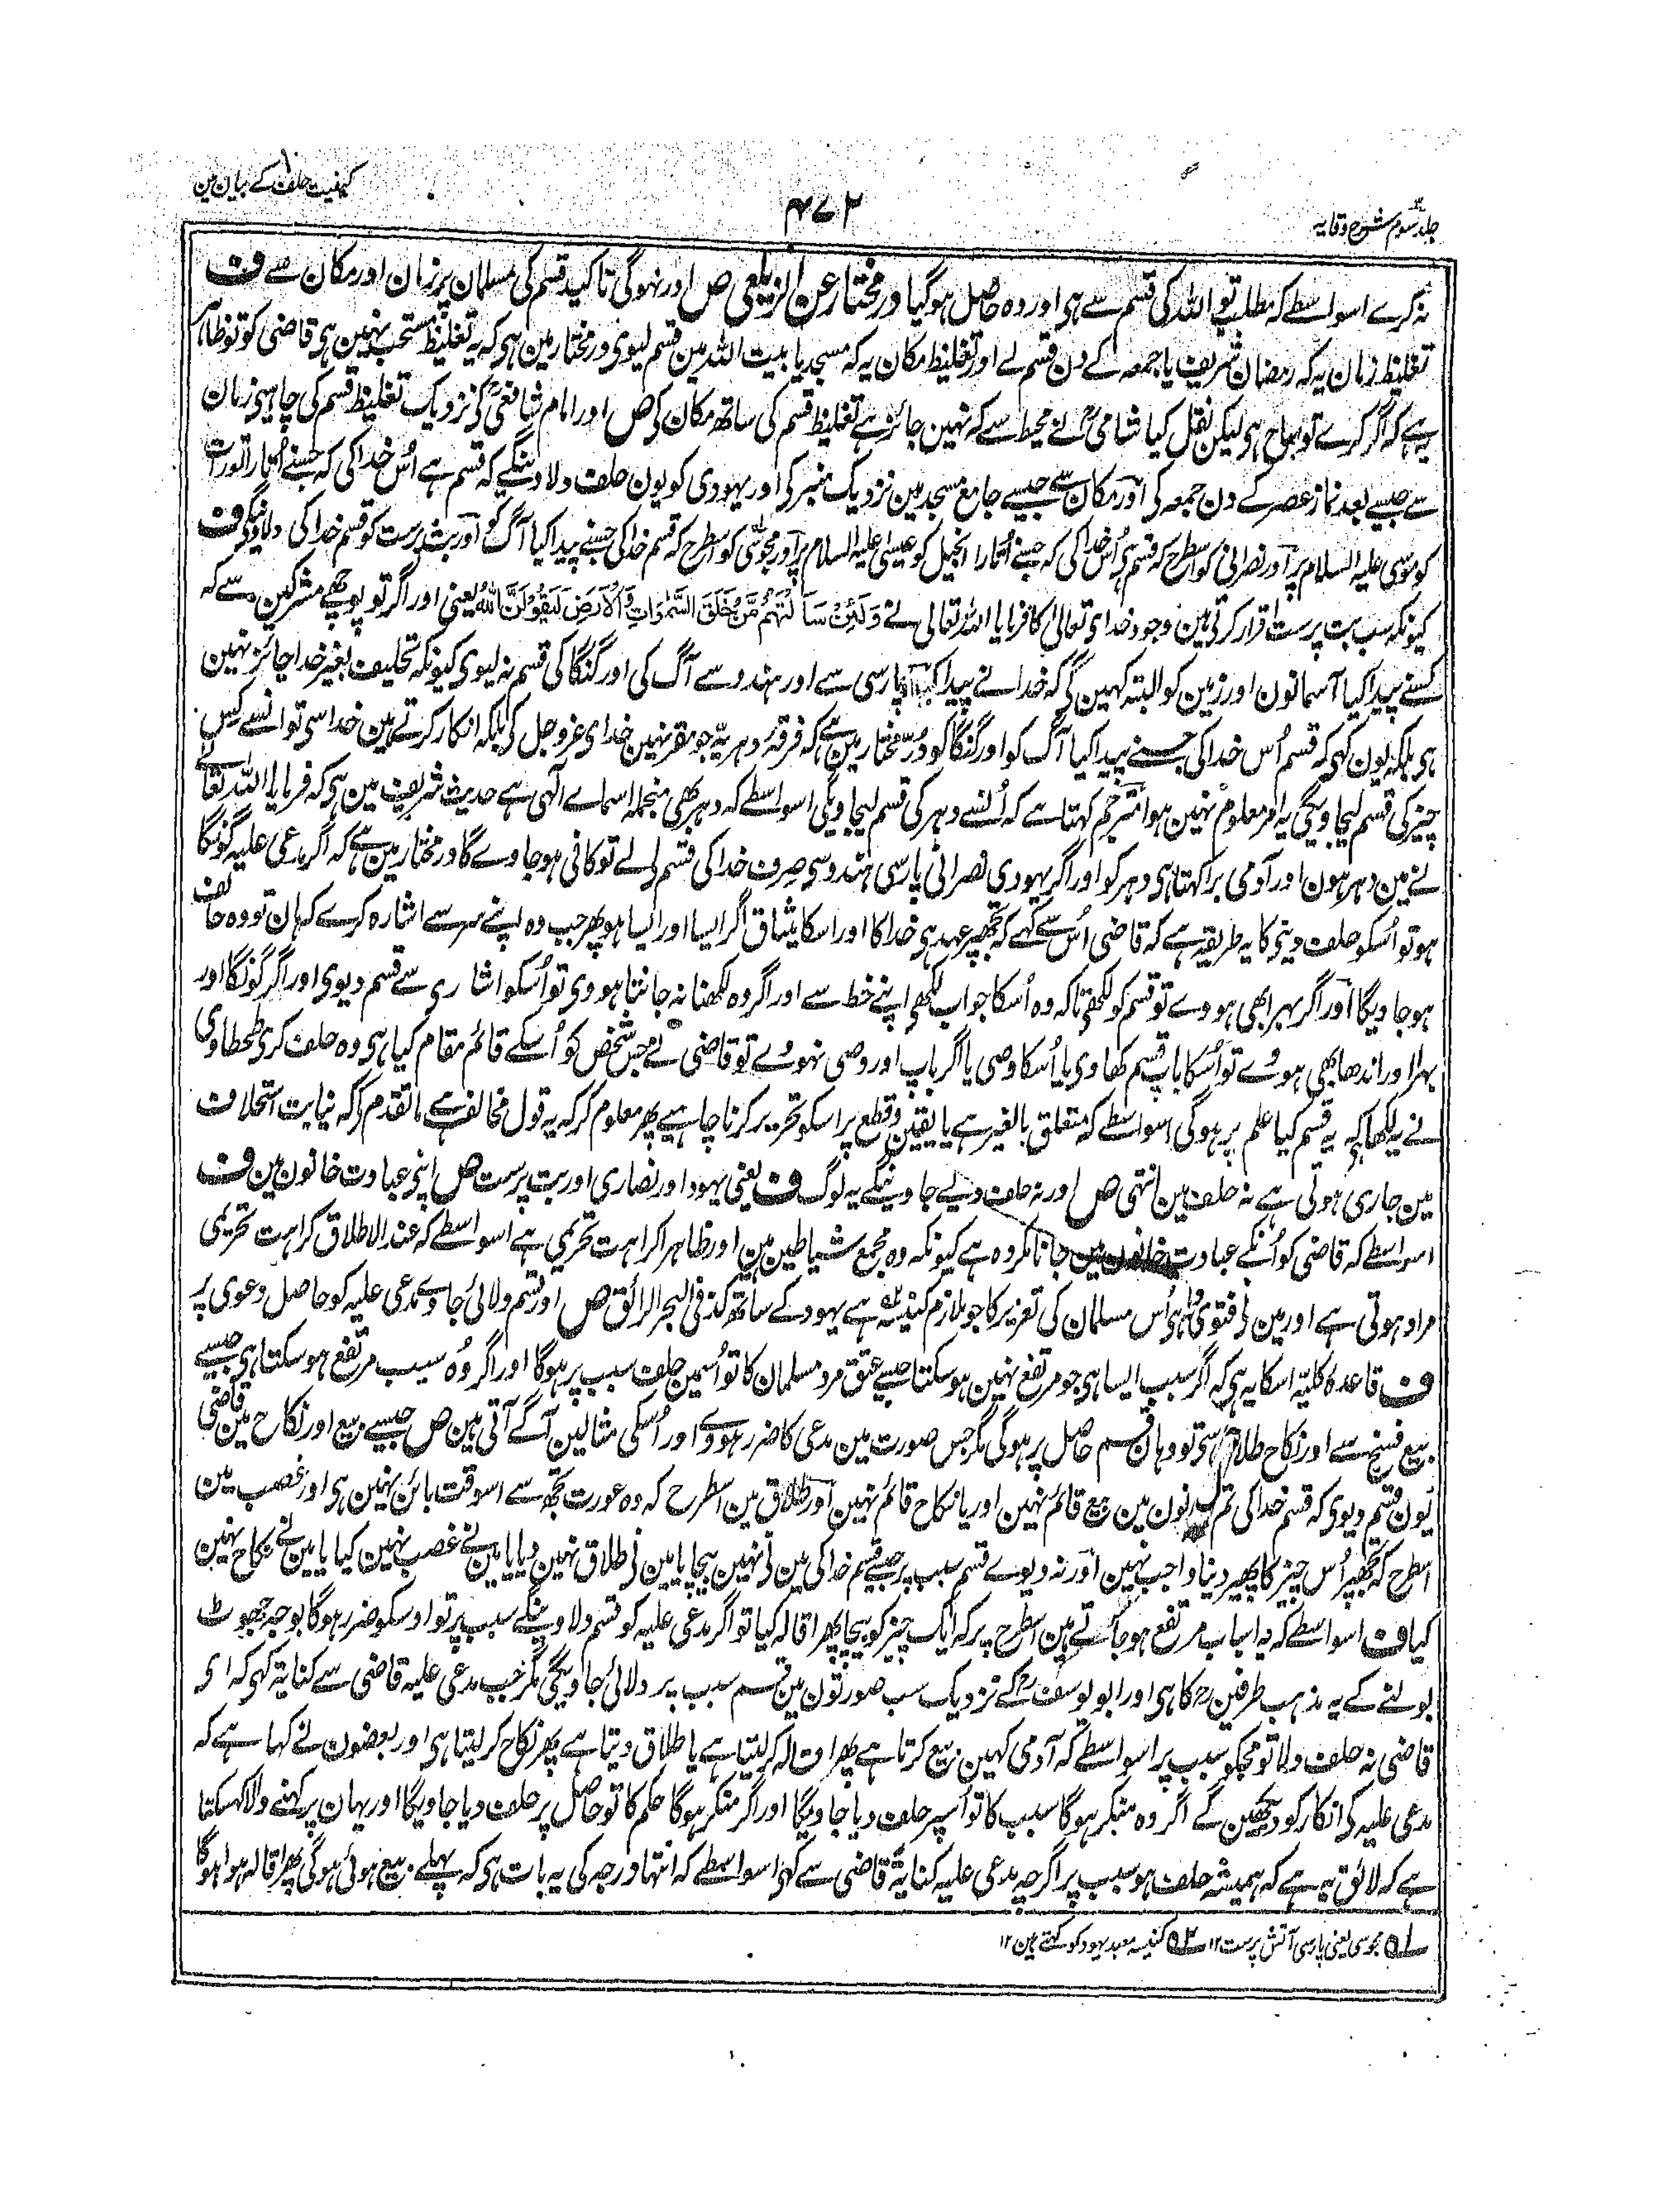 جلد سوم شرح وقایہ
۴۷۲
کیفیت حلف کے بیان مین
نہ کرے اسواسطے کہ مطلب تو اللہ کی قسم سے ہی اور وہ حاصل ہوگیا درمختار عن الزیلعی ص اور نہوگی تاکید قسم کی مسلمان پر زمان اور مکان سے ف
تغلیظ زمان یہ کہ رمضان شریف یا جمعہ کے دن قسم لے اور تغلیظ مکان یہ کہ مسجد یا بیت اللہ مین قسم لیوی درمختار مین ہی کہ یہ تغلیظ مستحب نہین ہی قاضی کو تو ظاہر
یہ ہے کہ اگر کرے تو مباح ہی لیکن نقل کیا شامی نے محیط سے کہ نہین جائز ہے تغلیظ قسم کی ساتھ مکان کی ص اور امام شافعی کی نزدیک تغلیظ قسم کی چاہیی زمان
سے جیسے بعد نماز عصر کے دن جمعہ کی اور مکان سے جیسے جامع مسجد مین نزدیک منبر کی اور یہودی کو یون حلف دلاوینگے کہ قسم ہے اُس خدا کی کہ جسنے اُتارا تورات
کو موسی علیہ السلام پر اور نصرانی کو اسطرح کہ قسم ہی اُس خدا کی کہ جسنے اُتارا انجیل کو عیسیٰ علیہ السلام پر اور مجوسی کو اسطرح کہ قسم خدا کی جسنے پیدا کیا آگ کو اور بت پرست کو قسم خدا کی دلاوینگی ف
کیونکہ سب بت پرست اقرار کرتی ہین وجود خدای تعالیٰ کا فرمایا اللہ تعالی نے وَلَئِنْ سَاَلْتَهُمْ مَّنْ خَلَقَ السَّمٰوَاتِ وَالْاَرْضَ لَيَقُوْلُنَّ اللّٰهُ یعنی اور اگر تو پوچھے مشرکین سے کہ
کسنے پیدا کیا آسمانون اور زمین کو البتہ کہین گی کہ خدا نے پیدا کیا پارسی سے اور ہندو سے آگ کی اور گنگا کی قسم نہ لیوی کیونکہ تحلیف بغیر خدا جائز نہین
ہی بلکہ یون کہی کہ قسم اُس خدا کی جسنے پیدا کیا آگ کو اور گنگا کو درمختار مین ہے کہ فرقہ دہریہ جو مقر نہین خدای عزوجل کی بلکہ انکار کرتے ہین خدا سی تو انسے کس
چیز کی قسم لیجاویگی یہ امر معلوم نہین ہوا مترجم کہتا ہے کہ اُنسے دہر کی قسم لیجاویگی اسواسطے کہ دہر بھی منجملہ اسماے الٰہی ہے حدیث شریف مین ہی کہ فرمایا اللہ تعالےٰ
نے مین دہر ہون اور آدمی برا کہتا ہی دہر کو اور اگر یہودی نصرانی پارسی ہندو سی صرف خدا کی قسم لے لے تو کافی ہوجاوے گا درمختار مین ہے کہ اگر مدعی علیہ گونگا
ہو تو اُسکو حلف دینی کا یہ طریقہ ہے کہ قاضی اُس سے کہے کہ تجھپر عہد ہی خدا کا اور اسکا میثاق اگر ایسا اور ایسا ہو پھر جب وہ اپنے سر سے اشارہ کرے کہ ہان تو وہ حالف
ہوجاویگا اور اگر بہرا بھی ہووے تو قسم کو لکھی تاکہ وہ اُسکا جواب لکھی اپنے خط سے اور اگر وہ لکھنا نہ جانتا ہووی تو اُسکو اشاری سے قسم دیوی اور اگر گونگا اور
بہرا اور اندھا بھی ہوے تو اُسکا باپ قسم کھاوی یا اُسکا وصی یا اگر باپ اور وصی نہوے تو قاضی نے جس شخص کو اُسکے قائم مقام کیا ہی وہ حلف کری طحطاوی
نے یہ لکھا کہ یہ قسم کیا علم پر ہوگی اسواسطے کہ متعلق بالغیر ہے یا یقین و قطع پر اسکو تحریر کرنا چاہیے پھر معلوم کر کہ یہ قول مخالف ہے ماتقدم کے کہ نیابت استحلاف
مین جاری ہوتی ہے نہ حلف مین انتہی ص اور نہ حلف دیے جاوینگے یہ لوگ ف یعنی یہود اور نصاری اور بت پرست ص اپنی عبادت خانون مین ف
اسواسطے کہ قاضی کو اُنکے عبادت خانون مین جانا مکروہ ہے کیونکہ وہ مجمع شیاطین ہین اور ظاہرا کراہت تحریمی ہے اسواسطے کہ عند الاطلاق کراہت تحریمی
مراد ہوتی ہے اور مین نے فتوی دیا ہی اُس مسلمان کی تعزیر کا جو ملازم کنیسہ ہے یہود کے ساتھ کذا فی البحر الرائق ص اور قسم دلائی جاوے مدعی علیہ کو حاصل دعوی پر
ف قاعدہ کلیہ اسکا یہ ہی کہ اگر سبب ایسا ہی جو مرتفع نہین ہوسکتا جیسے عتق مرد مسلمان کا تو اُسمین حلف سبب پر ہوگا اور اگر وہ سبب مرتفع ہوسکتا ہی جیسے
بیع فسخ سے اور نکاح طلاق سی تو وہان قسم حاصل پر ہوگی مگر جس صورت مین مدعی کا ضرر ہووے اور اُسکی مثالین آگے آتی ہین ص جیسے بیع اور نکاح مین قاضی
یون قسم دیوی کہ قسم خدا کی تم دونون مین بیع قائم نہین اور یا نکاح قائم نہین اور طلاق مین اسطرح کہ وہ عورت تجھ سے اسوقت بائن نہین ہی اور غصب مین
اسطرح کہ تجھپر اُس چیز کا پھیر دینا واجب نہین اور نہ دیوے قسم سبب پر جیسے قسم خدا کی مین نے نہین بیچا یا مین نے طلاق نہین دیا یا مین نے غصب نہین کیا یا مین نے نکاح نہین
کیا ف اسواسطے کہ یہ اسباب مرتفع ہوجاتے ہین اسطرح پر کہ ایک چیز کو بیچا پھر اقالہ کیا تو اگر مدعی علیہ کو قسم دلاوینگے سبب پر تو اوسکو ضرر ہوگا بوجہ جھوٹ
بولنے کے یہ مذہب طرفین کا ہی اور ابو یوسف کے نزدیک سب صورتون مین قسم سبب پر دلائی جاویگی مگر جب مدعی علیہ قاضی سے کنایۃً کہی کہ ای
قاضی نہ حلف دلا تو مجکو سبب پر اسواسطے کہ آدمی کہین بیع کرتا ہے پھر اقالہ کرلیتا ہے یا طلاق دیتا ہے پھر نکاح کرلیتا ہی اور بعضون نے کہا ہے کہ
مدعی علیہ کی انکار کو دیکھین گے اگر وہ منکر ہوگا سبب کا تو اُسپر حلف دیا جاویگا اور اگر منکر ہوگا حکم کا تو حاصل پر حلف دیا جاویگا اور یہان پر کہنے والا کہسکتا
ہے کہ لائق یہ ہے کہ ہمیشہ حلف ہو سبب پر اگرچہ مدعی علیہ کنایۃً قاضی سے کہی اسواسطے کہ انتہا درجہ کی یہ بات ہی کہ پہلے بیع ہوئی ہوگی پھر اقالہ ہوا ہوگا
۱؎ مجوسی یعنی پارسی آتش پرست ۱۲ ۲؎ کنیسہ معبد یہود کو کہتے ہین ۱۲